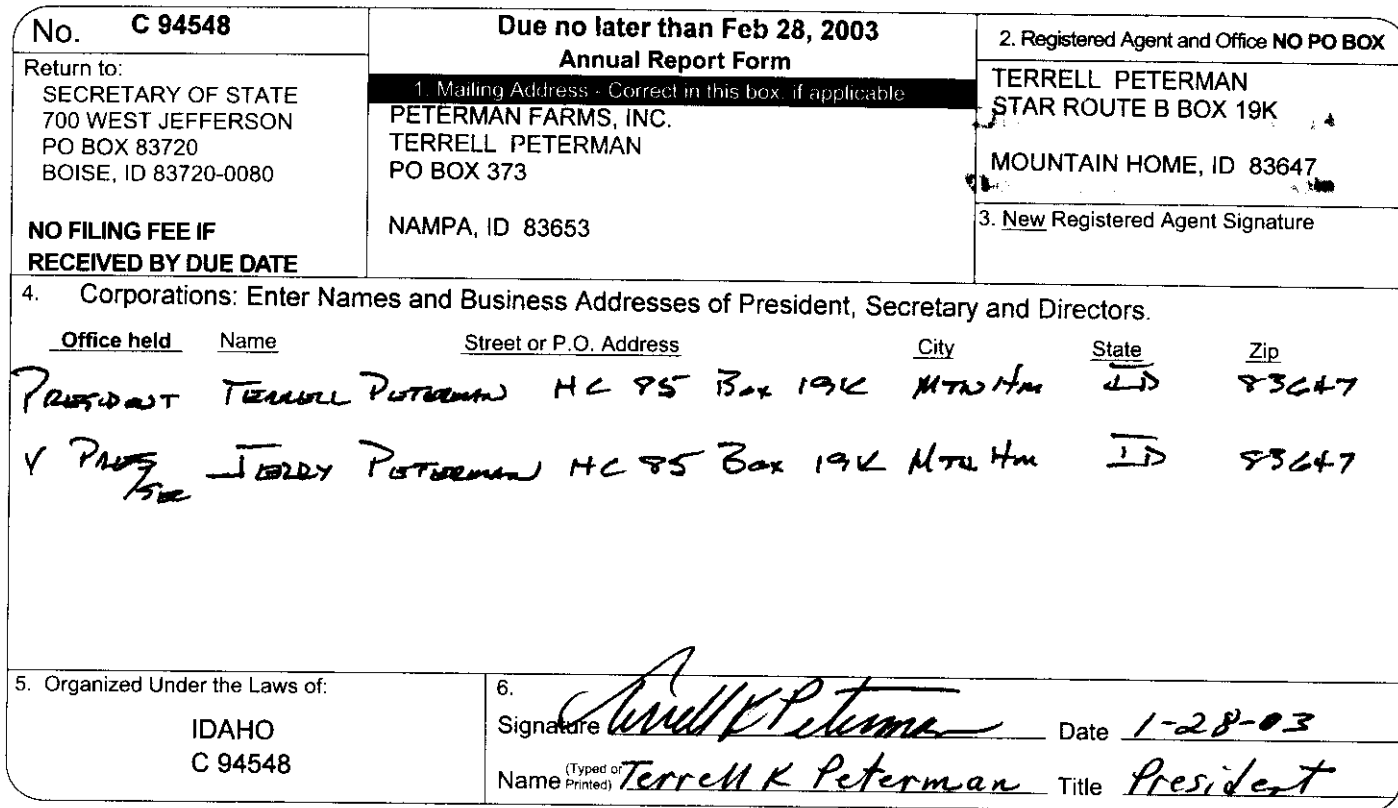 No. C 94548
Return to:
SECRETARY OF STATE
700 WEST JEFFERSON
PO BOX 83720
BOISE, ID 83720-0080
NO FILING FEE IF
RECEIVED BY DUE DATE
Due no later than Feb 28, 2003
Annual Report Form
1. Mailing Address - Correct in this box, if applicable
PETERMAN FARMS, INC.
TERRELL PETERMAN
PO BOX 373
NAMPA, ID 83653
2. Registered Agent and Office NO PO BOX
TERRELL PETERMAN
STAR ROUTE B BOX 19K
MOUNTAIN HOME, ID 83647
3. New Registered Agent Signature
4. Corporations: Enter Names and Business Addresses of President, Secretary and Directors.
Office held Name Street or P.O. Address City State Zip
PRESIDENT TERRELL PETERMAN HC 85 Box 19K MTN Hm ID 83647
V PRES/SEC JERRY PETERMAN HC 85 Box 19K MTN Hm ID 83647
5. Organized Under the Laws of:
IDAHO
C 94548
6.
Signature Terrell K Peterman Date 1-28-03
Name (Typed or Printed) Terrell K Peterman Title President